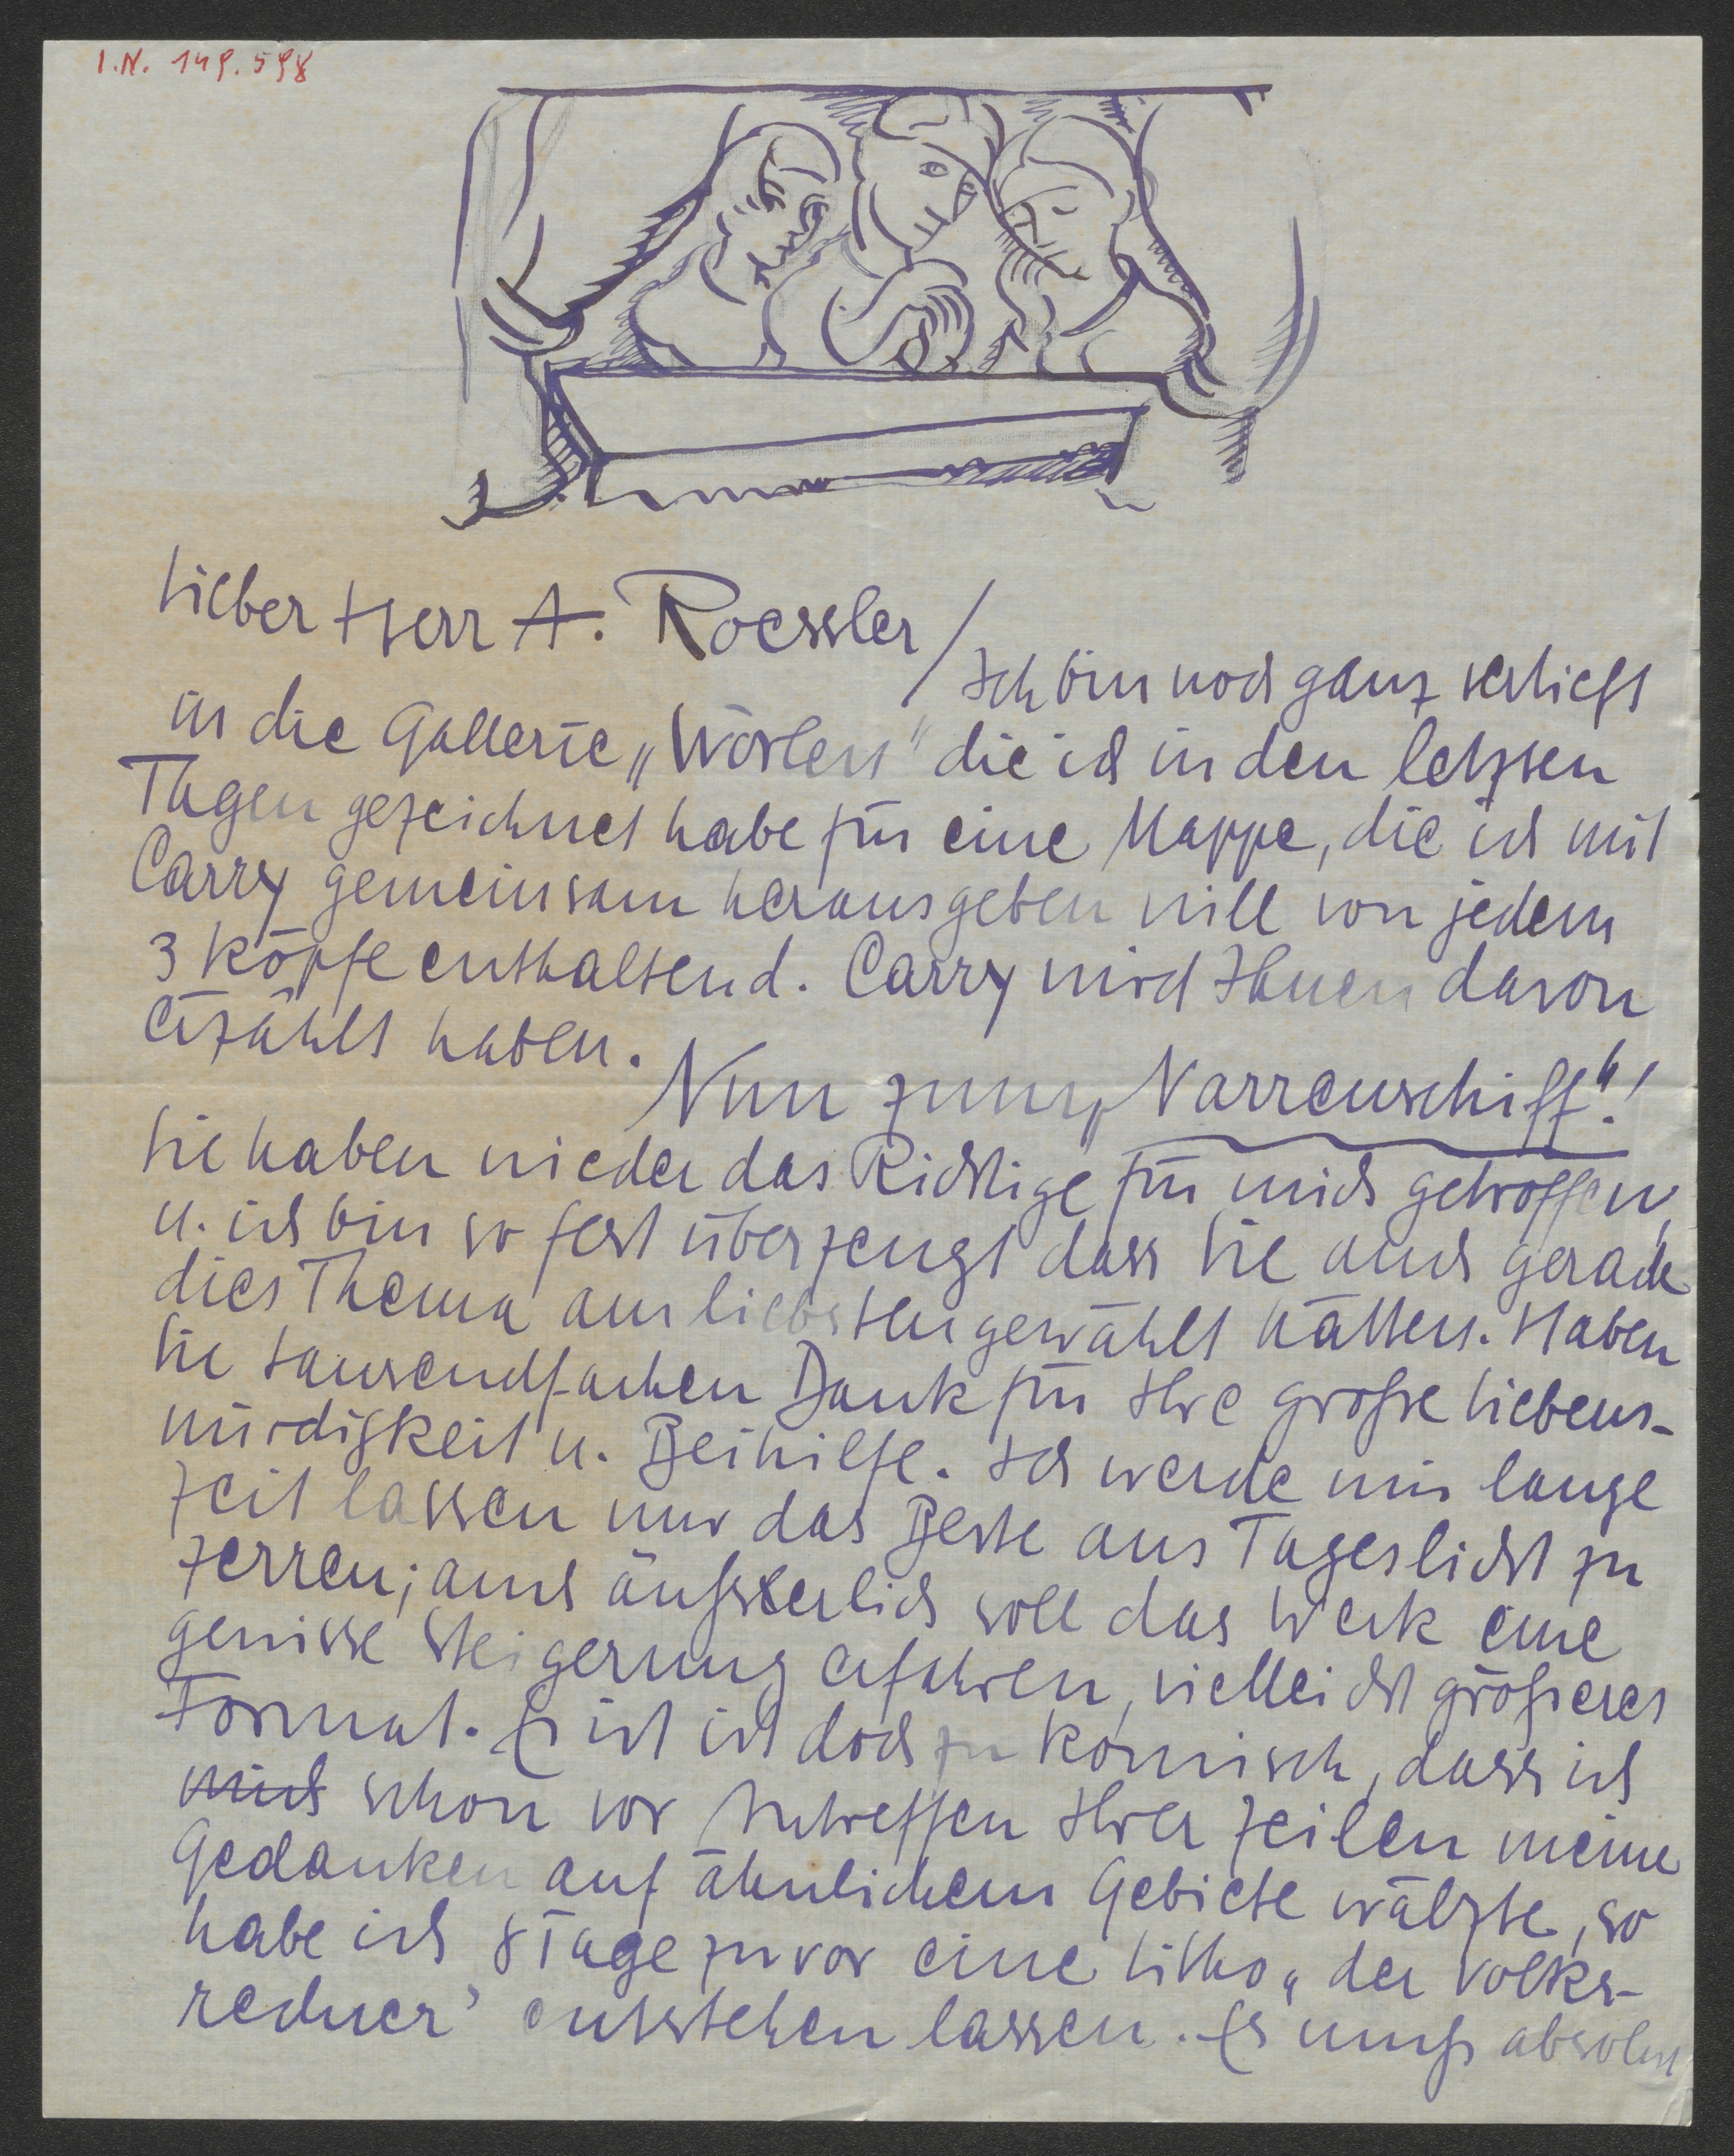 I.N. 149.598
Lieber Herr A. Roessler/
Ich bin noch ganz verliebt
in die Gallerie „Wörlen" die ich in den letzten
Tagen gezeichnet habe für eine Mappe, die ich mit
Carry gemeinsam herausgeben will von jedem
3 Köpfe enthaltend. Carry wird Ihnen davon
erzählt haben.
Nun zum „Narrenschiff"!
Sie haben wieder das Richtige für mich getroffen,
u. ich bin so fest überzeugt dass Sie auch gerade
dies Thema am liebsten gewählt hätten. Haben
Sie tausendfachen Dank für Ihre große Liebens-
würdigkeit u. Beihilfe. Ich werde mir lange
Zeit lassen nur das Beste ans Tageslicht zu
zerren; auch äußserlich soll das Werk eine
gewisse Steigerung erfahren, vielleicht größeres
Format. Es ist ist doch zu komisch, dass ich
mich schon vor Antreffen Ihrer Zeilen meine
Gedanken auf ähnlichem Gebiete wälzte, so
habe ich 8 Tage zuvor eine Litho „der Volks-
redner' entstehen lassen. Es muß absolut